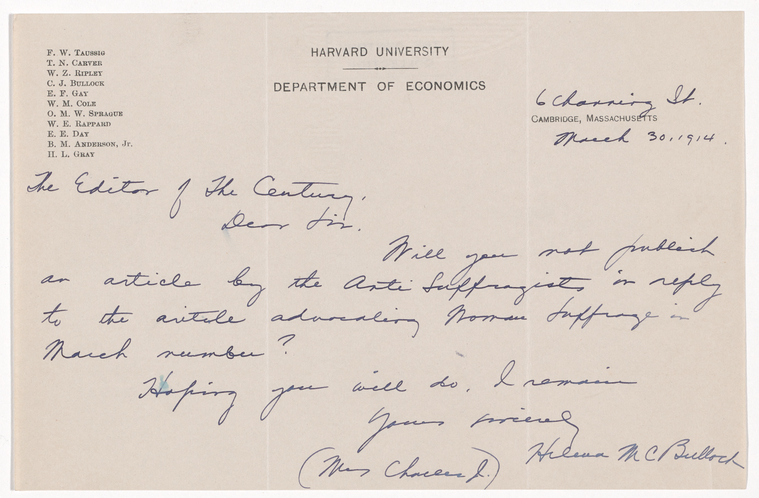 F. W. Taussig
T. N. Carver
W. Z. Ripley
C. J. Bullock
E. F. Gay
W. M. Cole
O. M. W. Sprague
W. E. Rappard
E. E. Day
B. M. Anderson, Jr.
H. L. Gray
HARVARD UNIVERSITY
DEPARTMENT OF ECONOMICS
6 Channing St.
Cambridge, Massachusetts
March 30, 1914.
The Editor of The Century,
Dear Sir.
Will you not publish
an article by the Anti Suffragists in reply
to the article advocating Woman Suffrage in
March number?
Hoping you will do, I remain
Yours sincerely
Helena McBullock
(Mrs Charles J.)